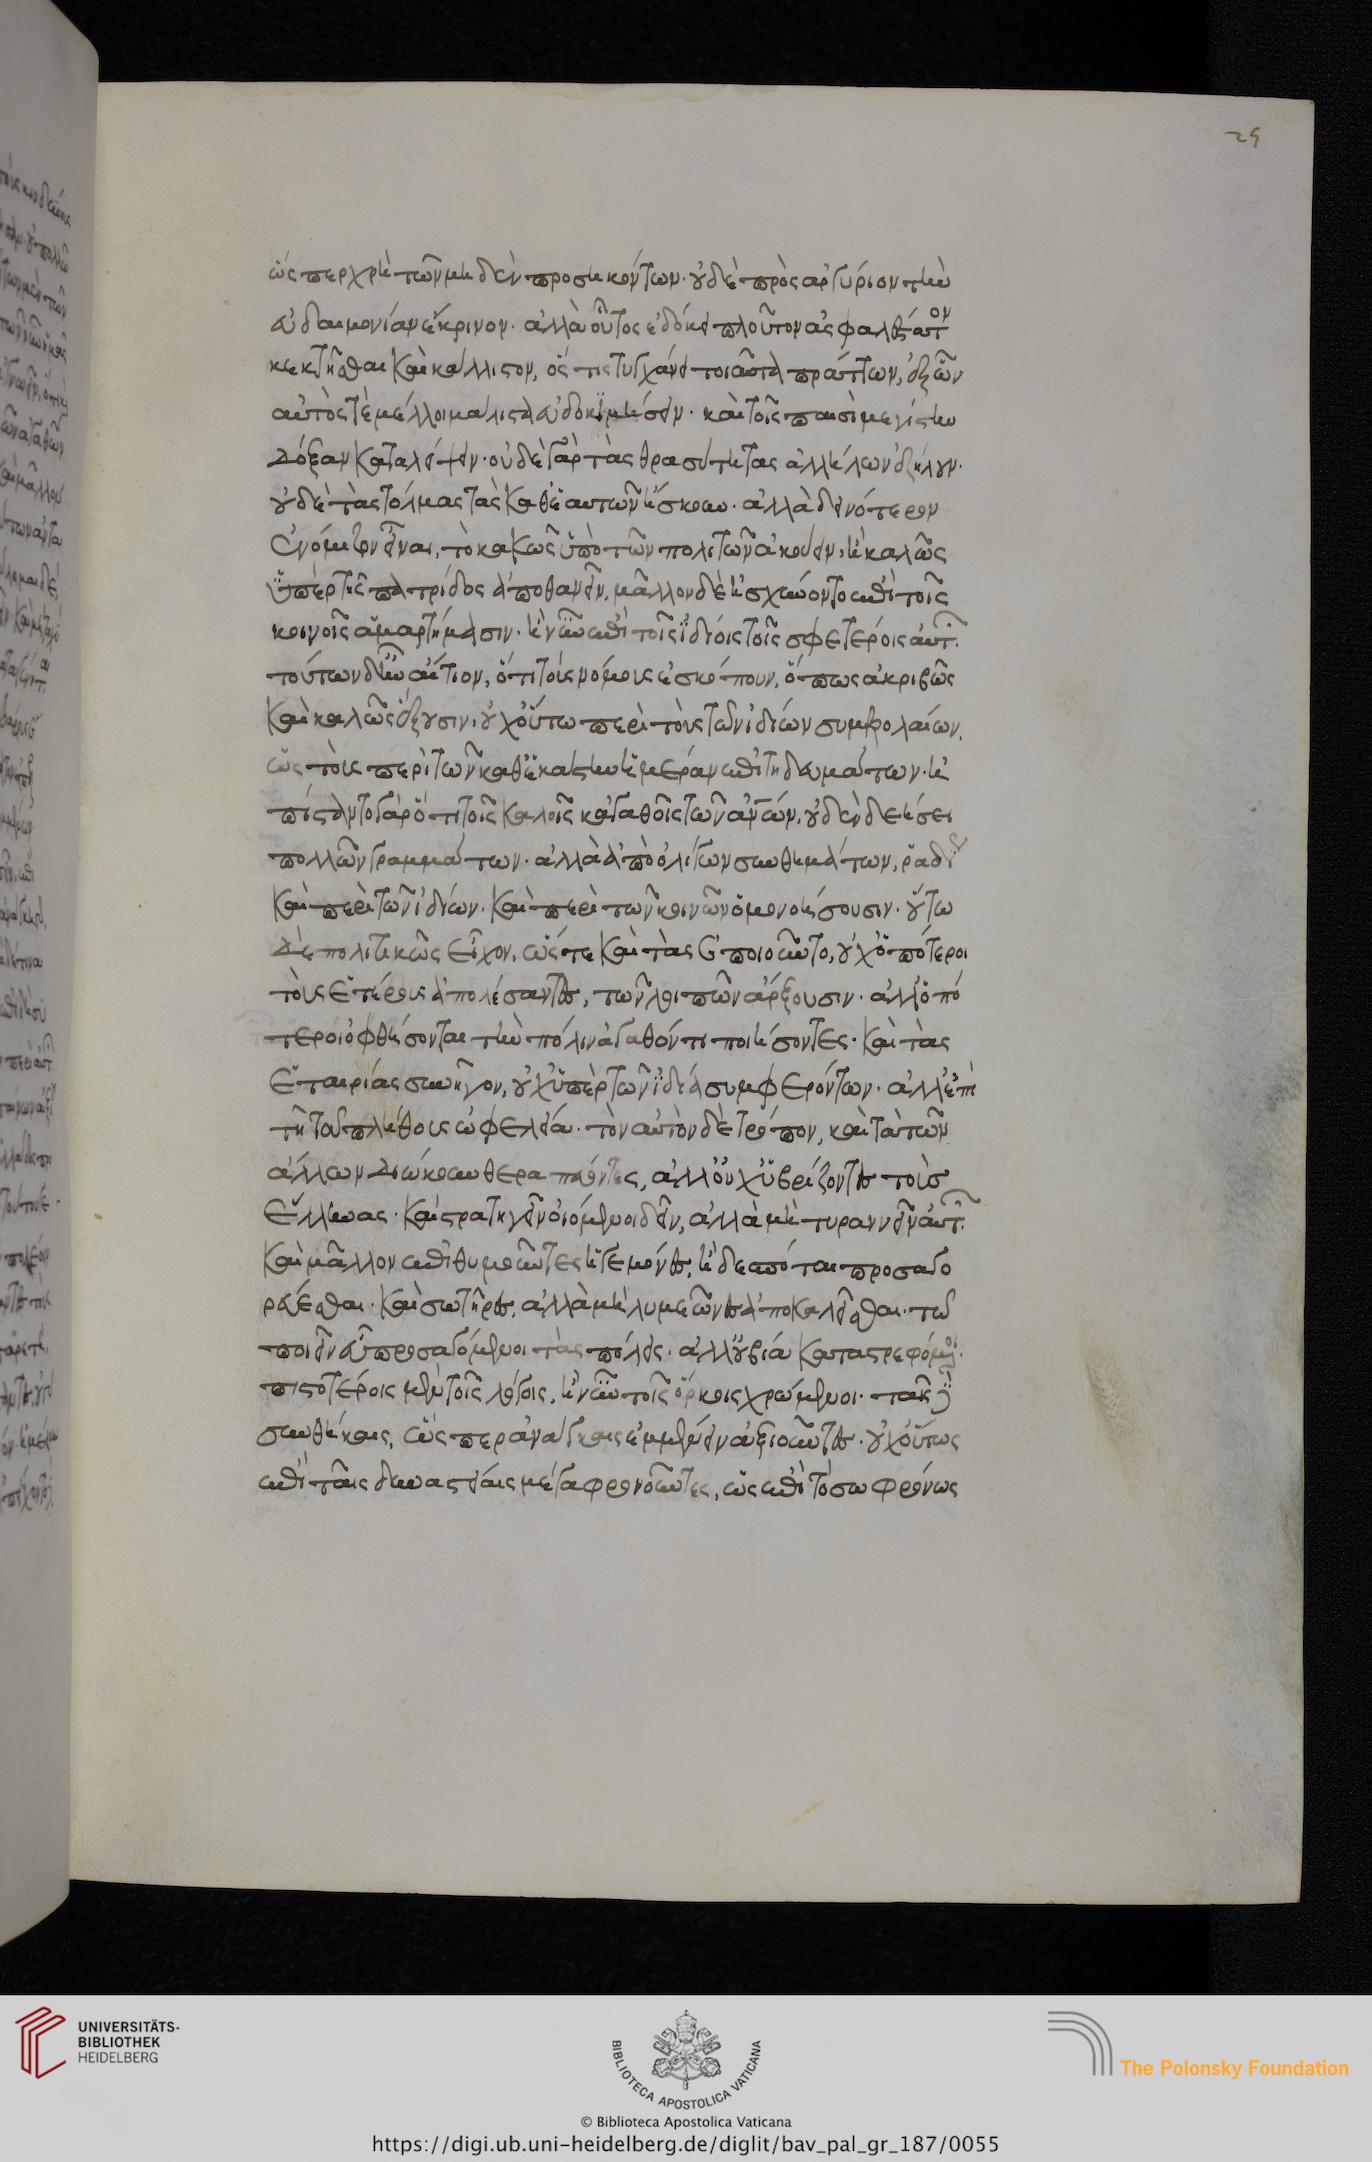 25
ὥσπερ χρὴ τῶν μηδὲν προσηκόντων· οὐδὲ πρὸς ἀργύριον τὴν
εὐδαιμονίαν ἔκρινον· ἀλλὰ οὗτος ἐδόκει πλοῦτον ἀσφαλέστατον
κεκτῆσθαι καὶ κάλλιστον, ὅς τις τυγχάνει τοιαῦτα πράττων, ἐξ ὧν
αὐτός τε μέλλοι μάλιστα εὐδοκιμήσειν· καὶ τοῖς παισὶ μεγίστην
δόξαν καταλείψειν· οὐδὲ γὰρ τὰς θρασύτητας ἀλλήλων ἐζήλουν·
οὐδὲ τὰς τόλμας τὰς καθ' ἑαυτῶν ἤσκουν· ἀλλὰ δεινότερον
ἐνόμιζον εἶναι, τὸ κακῶς ὑπὸ τῶν πολιτῶν ἀκούειν, ἢ καλῶς
ὑπὲρ τῆς πατρίδος ἀποθανεῖν, μᾶλλον δὲ ἠσχύνοντο ἐπὶ τοῖς
κοινοῖς ἁμαρτήμασιν· ἢ νῦν ἐπὶ τοῖς ἰδίοις τοῖς σφετέροις αὐτῶν.
τούτων δ' ἦν αἴτιον, ὅτι τοὺς νόμους ἐσκόπουν, ὅπως ἀκριβῶς
καὶ καλῶς ἕξουσιν, οὐχ οὕτω περὶ τοὺς τῶν ἰδίων συμβολαίων,
ὡς τοὺς περὶ τῶν καθ' ἑκάστην ἡμέραν ἐπιτηδευμάτων· ἠ
πίσταντο γὰρ ὅτι τοῖς καλοῖς κἀγαθοῖς τῶν ἀνων, οὐδὲν δεήσει
πολλῶν γραμμάτων· ἀλλὰ ἀπὸ ὀλίγων συνθημάτων, ῥαδί
καὶ περὶ τῶν ἰδίων· καὶ περὶ τῶν κοινῶν ὁμονοήσουσιν· οὕτω
δὲ πολιτικῶς εἶχον, ὥστε καὶ τὰς ἐποιοῦντο, οὐχ ὁπότεροι
τοὺς ἑτέρους ἀπολέσαντες, τῶν λοιπῶν ἄρξουσιν· ἀλλ' ὁπό
τεροι ὀφθήσονται τὴν πόλιν ἀγαθόν τι ποιήσοντες· καὶ τὰς
ἑταιρίας συνῆγον, οὐχ ὑπὲρ τῶν ἰδίᾳ συμφερόντων· ἀλλ' ἐπὶ
τῇ τοῦ πλήθους ὠφελείᾳ· τὸν αὐτὸν δὲ τρόπον, καὶ τὰ τῶν
ἄλλων διῴκουν θεραπεύοντες, ἀλλ' οὐχ ὑβρίζοντες τοὺς
Ἕλληνας· καὶ στρατηγεῖν οἰόμενοι δεῖν, ἀλλὰ μὴ τυραννεῖν αὐτῶν·
καὶ μᾶλλον ἐπιθυμοῦντες ἡγεμόνες, ἢ δεσπόται προσαγο
ρεύεσθαι· καὶ σωτῆρες, ἀλλὰ μὴ λυμεῶνες ἀποκαλεῖσθαι· τῷ
ποιεῖν εὖ προσαγόμενοι τὰς πόλεις· ἀλλ' οὐ βίᾳ καταστρεφόμενοι·
πιστοτέροις μὲν τοῖς λόγοις, ἢ νῦν τοῖς ὅρκοις χρώμενοι· ταῖς δὲ
συνθήκαις, ὥσπερ ἀνάγκαις ἐμμένειν ἀξιοῦντες· οὐχ οὕτως
ἐπὶ ταῖς δυναστείαις μέγα φρονοῦντες, ὡς ἐπὶ τὸ σωφρόνως
UNIVERSITÄTS-
BIBLIOTHEK
HEIDELBERG
BIBLIOTECA APOSTOLICA VATICANA
The Polonsky Foundation
© Biblioteca Apostolica Vaticana
https://digi.ub.uni-heidelberg.de/diglit/bav_pal_gr_187/0055